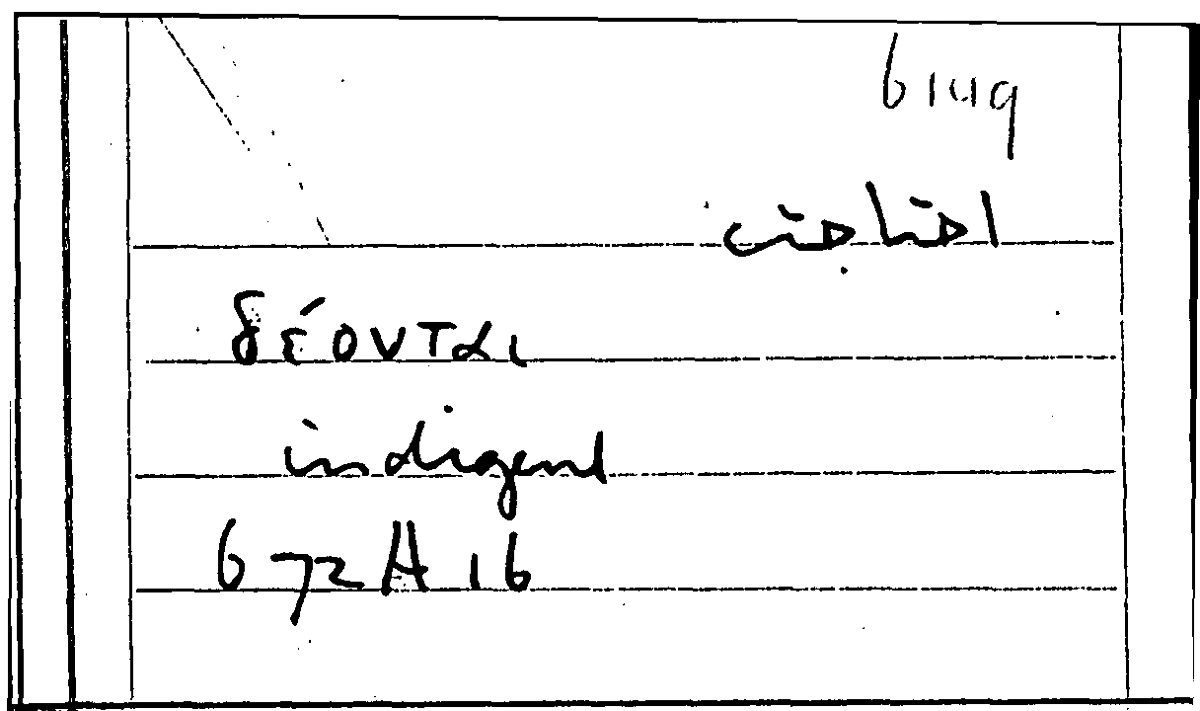 6149
احتاجت
δέονται
indigent
b 72 A 16